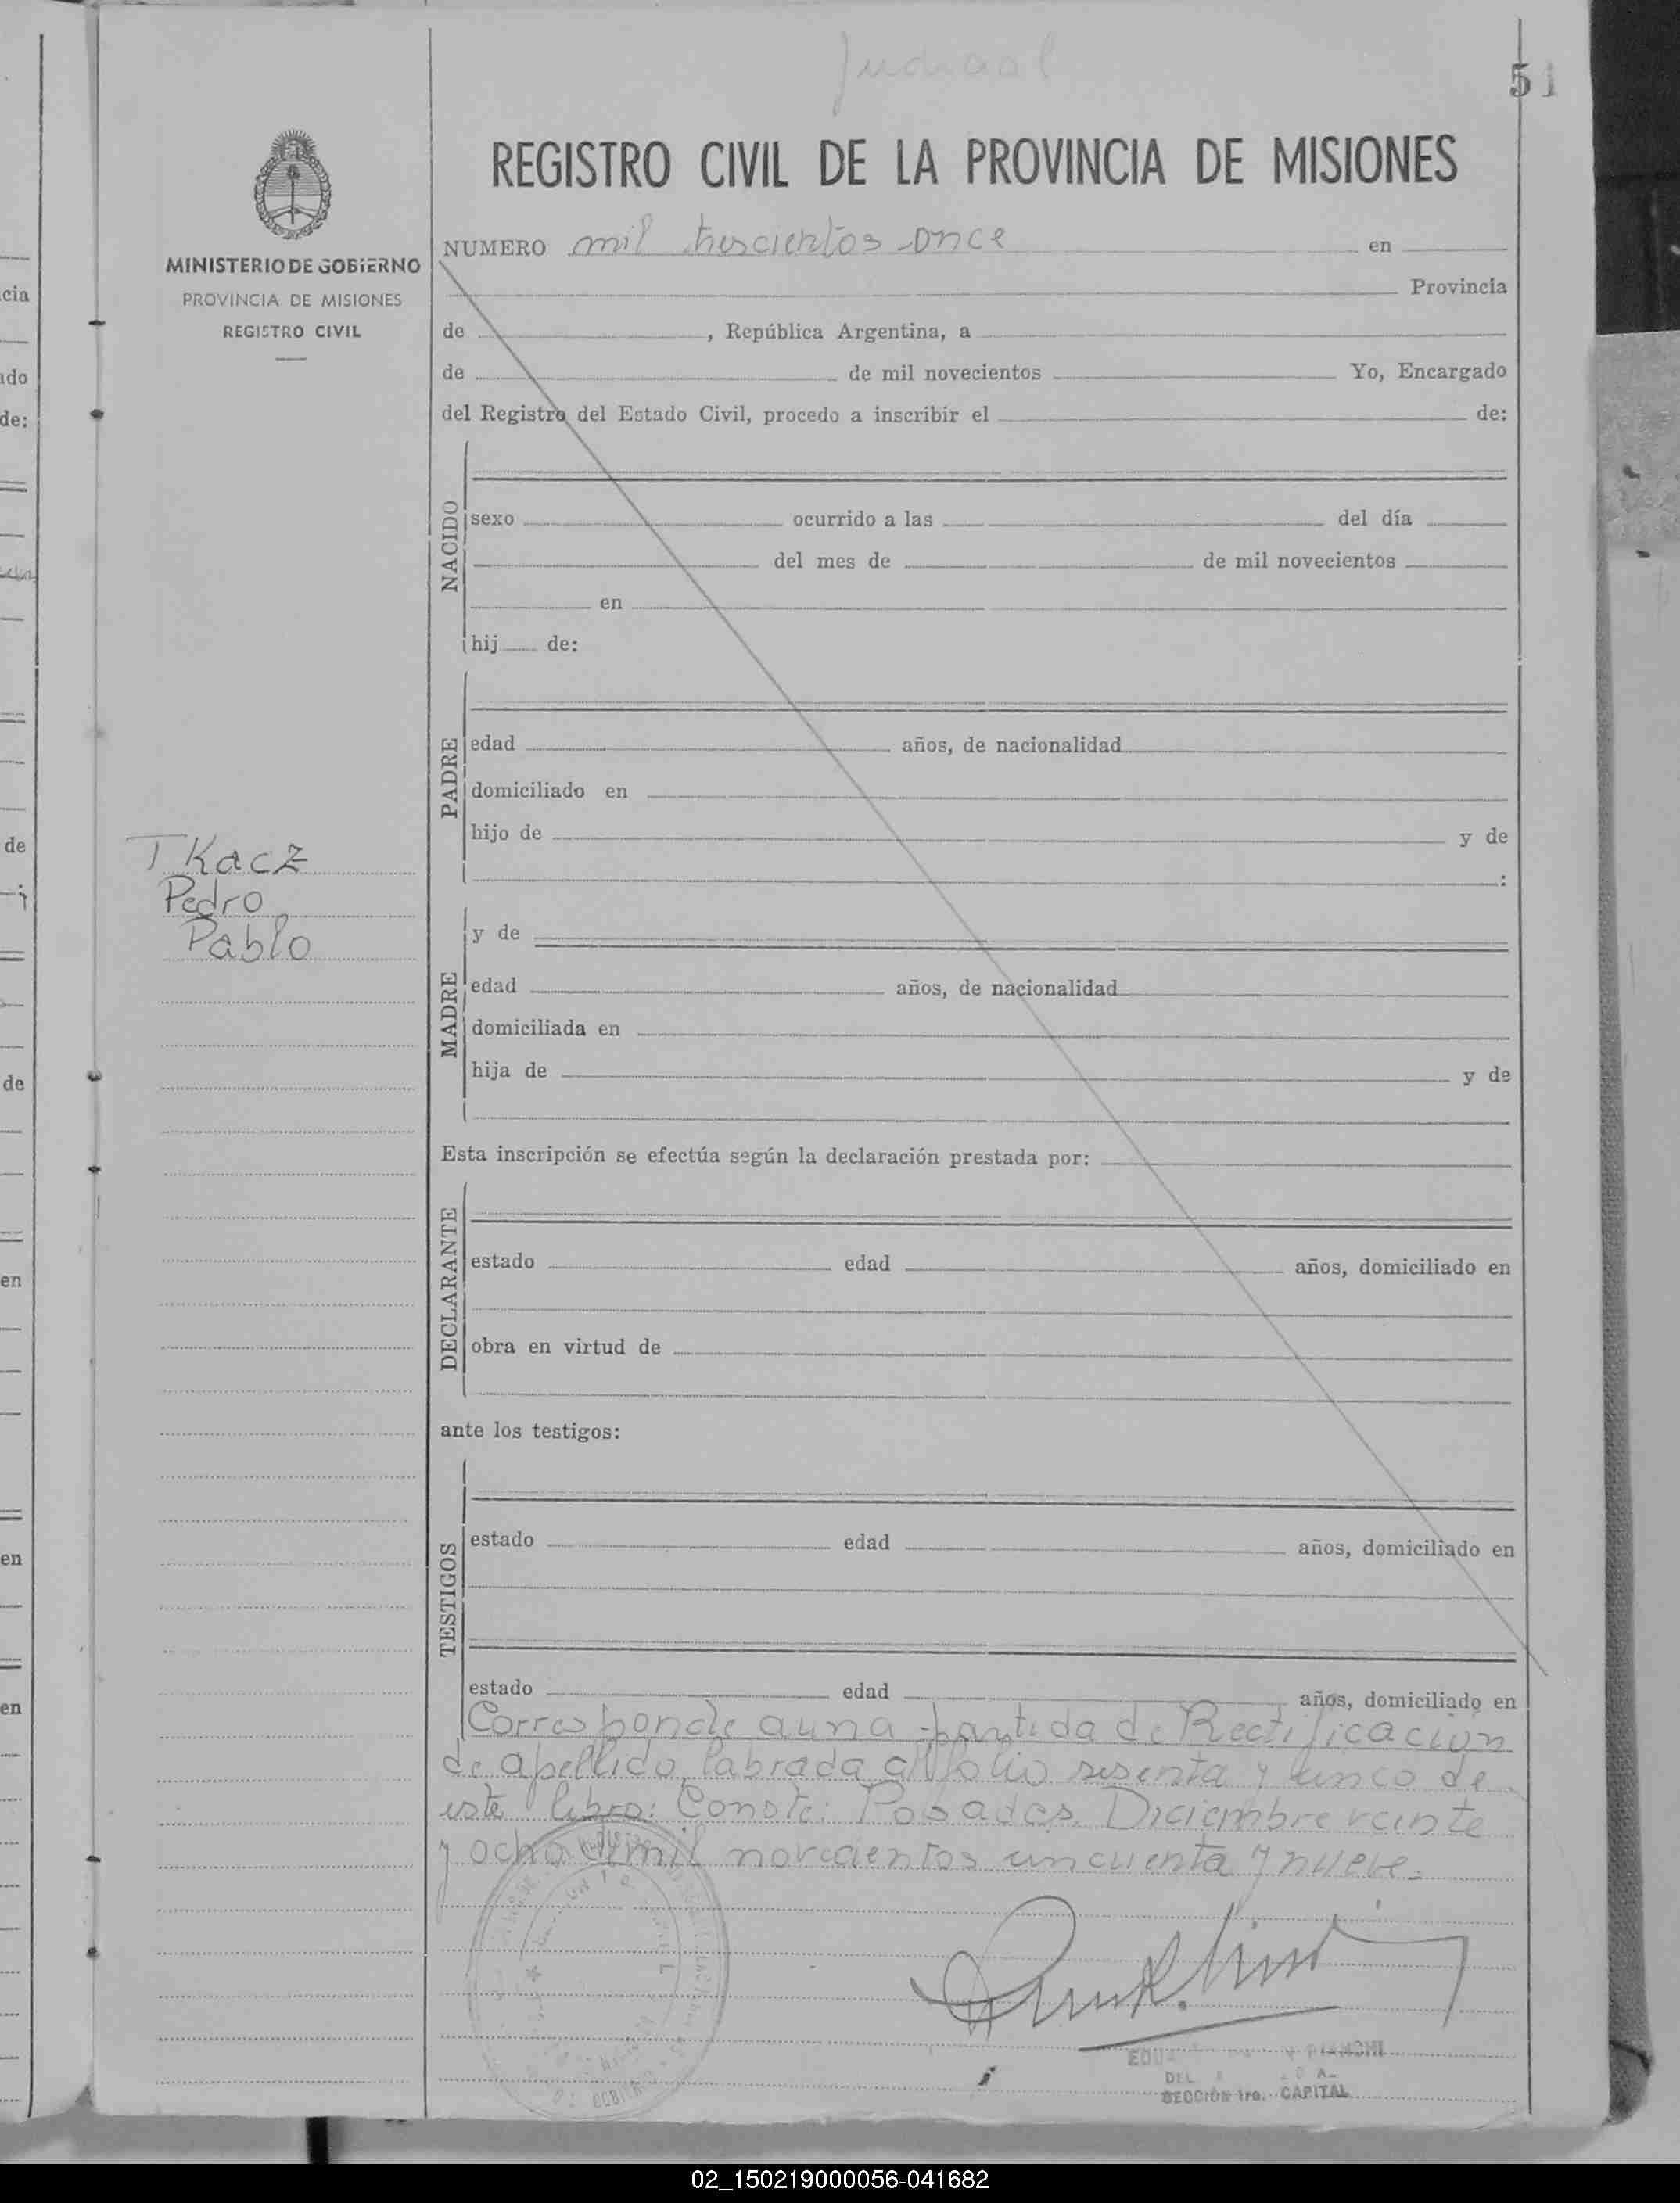 Judicial
51
REGISTRO CIVIL DE LA PROVINCIA DE MISIONES
MINISTERIO DE GOBIERNO
PROVINCIA DE MISIONES
REGISTRO CIVIL
NUMERO mil trescientos once en
Provincia
de , República Argentina, a
de de mil novecientos Yo, Encargado
del Registro del Estado Civil, procedo a inscribir el de:
NACIDO
sexo ocurrido a las del día
del mes de de mil novecientos
en
hij de:
PADRE
edad años, de nacionalidad
domiciliado en
hijo de y de
:
TKacz
Pedro
Pablo
MADRE
y de
edad años, de nacionalidad
domiciliada en
hija de y de
Esta inscripción se efectúa según la declaración prestada por:
DECLARANTE
estado edad años, domiciliado en
obra en virtud de
ante los testigos:
TESTIGOS
estado edad años, domiciliado en
estado edad años, domiciliado en
Corresponde a una partida de Rectificación
de apellido, labrada al folio sesenta y cinco de
este libro: Conste: Posadas, Diciembre veinte
y ocho de mil novecientos cincuenta y nueve.
BIANCHI
SECCIÓN 1ra. CAPITAL
cia
ado
de:
de
de
en
en
en
02_150219000056-041682